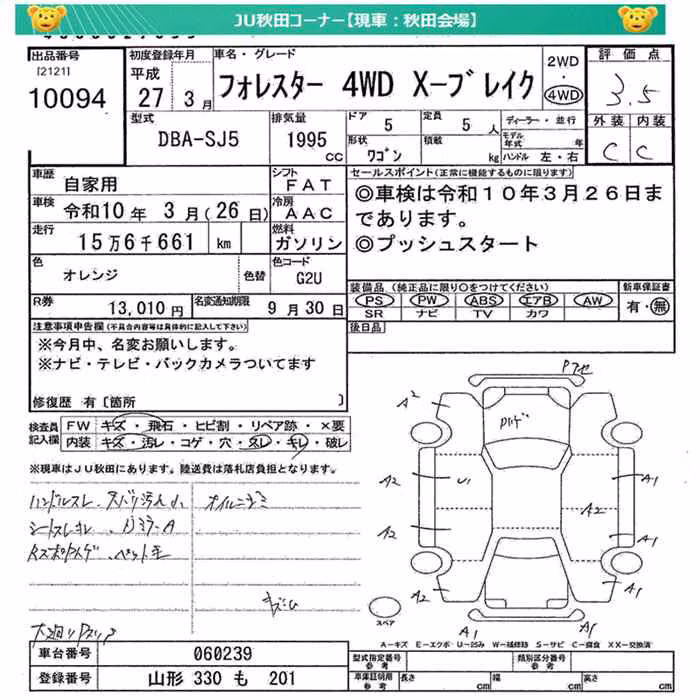 JU秋田コーナー【現車：秋田会場】
出品番号
[2121]
10094
初度登録年月
平成
27 3月
車名・グレード
フォレスター 4WD X-ブレイク
2WD
・
4WD
評価点
3.5
型式
DBA-SJ5
排気量
1995
cc
ドア
5
定員
5 人
形状
ワゴン
積載
kg
ディーラー・並行
モデル年式
年
ハンドル 左・右
外装 内装
C C
車歴
自家用
シフト
FAT
車検
令和10年 3月(26日)
冷房
AAC
走行
15万6千661 km
燃料
ガソリン
色
オレンジ
色替
色コード
G2U
R券
13,010円
名変通知期限
9月30日
セールスポイント(正常に機能するものに限ります)
◎車検は令和10年3月26日ま
であります。
◎プッシュスタート
装備品 (純正品に限り○をつけてください)
PS PW ABS エアB AW
SR ナビ TV カワ
新車保証書
有・無
後日品
注意事項申告欄(不具合内容等は具体的に記入して下さい)
※今月中、名変お願いします。
※ナビ・テレビ・バックカメラついてます
修復歴 有〔箇所 〕
検査員
記入欄
FW キズ・飛石・ヒビ割・リペア跡・×要
内装 キズ・汚レ・コゲ・穴・スレ・キレ・破レ
※現車はJU秋田にあります。陸送費は落札店負担となります。
ハンドルスレ
オイルニジミ
A2
A2
U1
A1
A2
A2
A1
A2
A1
A1
スペア
A-キズ E-エクボ U-凹み W-補修跡 S-サビ C-腐食 XX-交換済
車台番号
060239
登録番号
山形 330 も 201
型式指定番号
参考
類別区分番号
参考
車庫証明用
参考
長さ
cm
幅
cm
高さ
cm